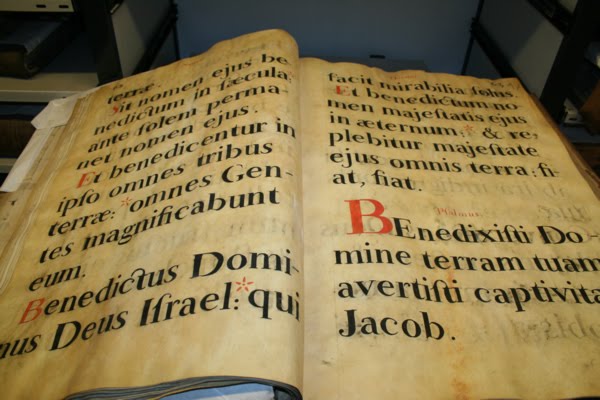 terræ.
Sit nomen ejus be-
nedictum in ſæcula:
ante ſolem perma-
net nomen ejus.
Et benedicentur in
ipſo omnes tribus
terræ: * omnes Gen-
tes magnificabunt
eum.
Benedictus Domi-
nus Deus Iſrael: * qui
facit mirabilia ſolus.
Et benedictum no-
men majeſtatis ejus
in æternum: * & re,
plebitur majeſtate
ejus omnis terra: fi-
at, fiat.
Pſalmus
BEnedixiſti Do-
mine terram tuam
avertiſti captivita
Jacob.